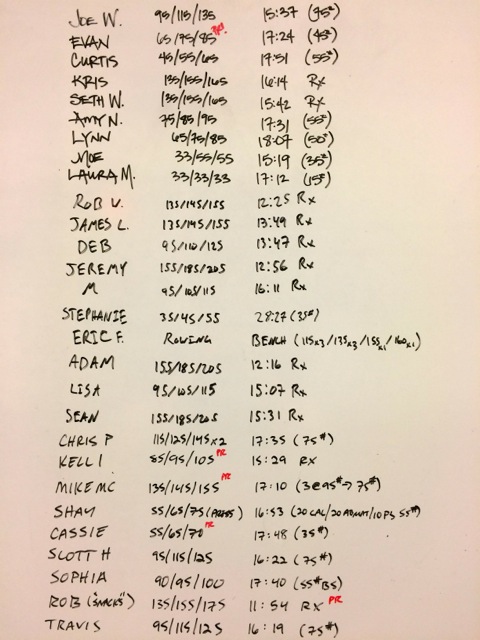 JOE W. 95/115/135 15:37 (95#)
EVAN 65/75/85 PR! 17:24 (45#)
CURTIS 45/55/65 17:51 (55#)
KRIS 135/155/165 16:14 Rx
SETH W. 135/155/165 15:42 Rx
AMY N. 75/85/95 17:31 (55#)
LYNN 65/75/85 18:07 (50#)
MOE 33/55/55 15:19 (35#)
LAURA M. 33/33/33 17:12 (15#)
ROB V. 135/145/155 12:25 Rx
JAMES L. 135/145/155 13:49 Rx
DEB 95/110/125 13:47 Rx
JEREMY 155/185/205 12:56 Rx
M 95/105/115 16:11 Rx
STEPHANIE 35/45/55 28:27 (35#)
ERIC F. ROWING BENCH (115x3/135x3/155x1/160x1)
ADAM 155/185/205 12:16 Rx
LISA 95/105/115 15:07 Rx
SEAN 155/185/205 15:31 Rx
CHRIS P 115/125/145x2 17:35 (75#)
KELLI 85/95/105 PR 15:29 RX
MIKE MC 135/145/155 PR 17:10 (3@95#→75#)
SHAY 55/65/75 (PRESS) 16:53 (20 CAL/20 /10 PS 55#)
CASSIE 55/65/70 PR 17:48 (35#)
SCOTT H 95/115/125 16:22 (75#)
SOPHIA 90/95/100 17:40 (55# BS)
ROB ("SNACKS") 135/155/175 11:54 RX PR
TRAVIS 95/115/125 16:19 (75#)